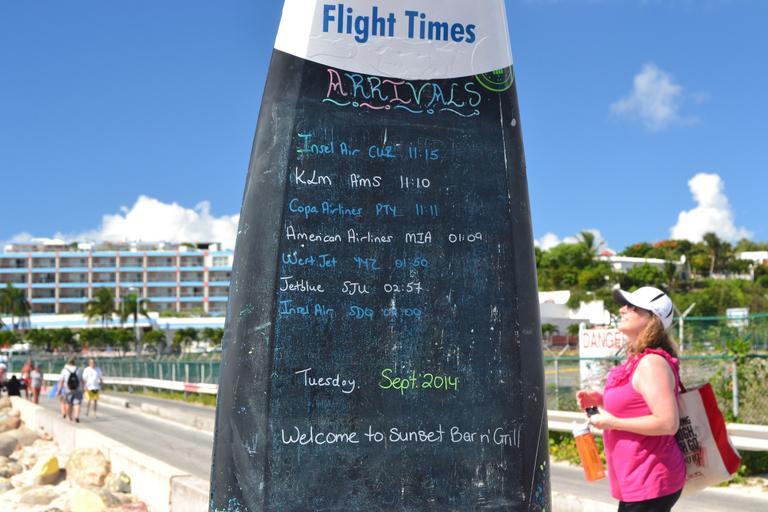 Flight Times
ARRIVALS
Insel Air CUR 11:15
KLM AMS 11:10
Copa Airlines PTY 11:11
American Airlines MIA 01:09
West Jet YYZ 01:50
Jetblue SJU 02:57
Insel Air SDQ 03:09
Tuesday. Sept. 2014
Welcome to Sunset Bar n' Grill
DANGE